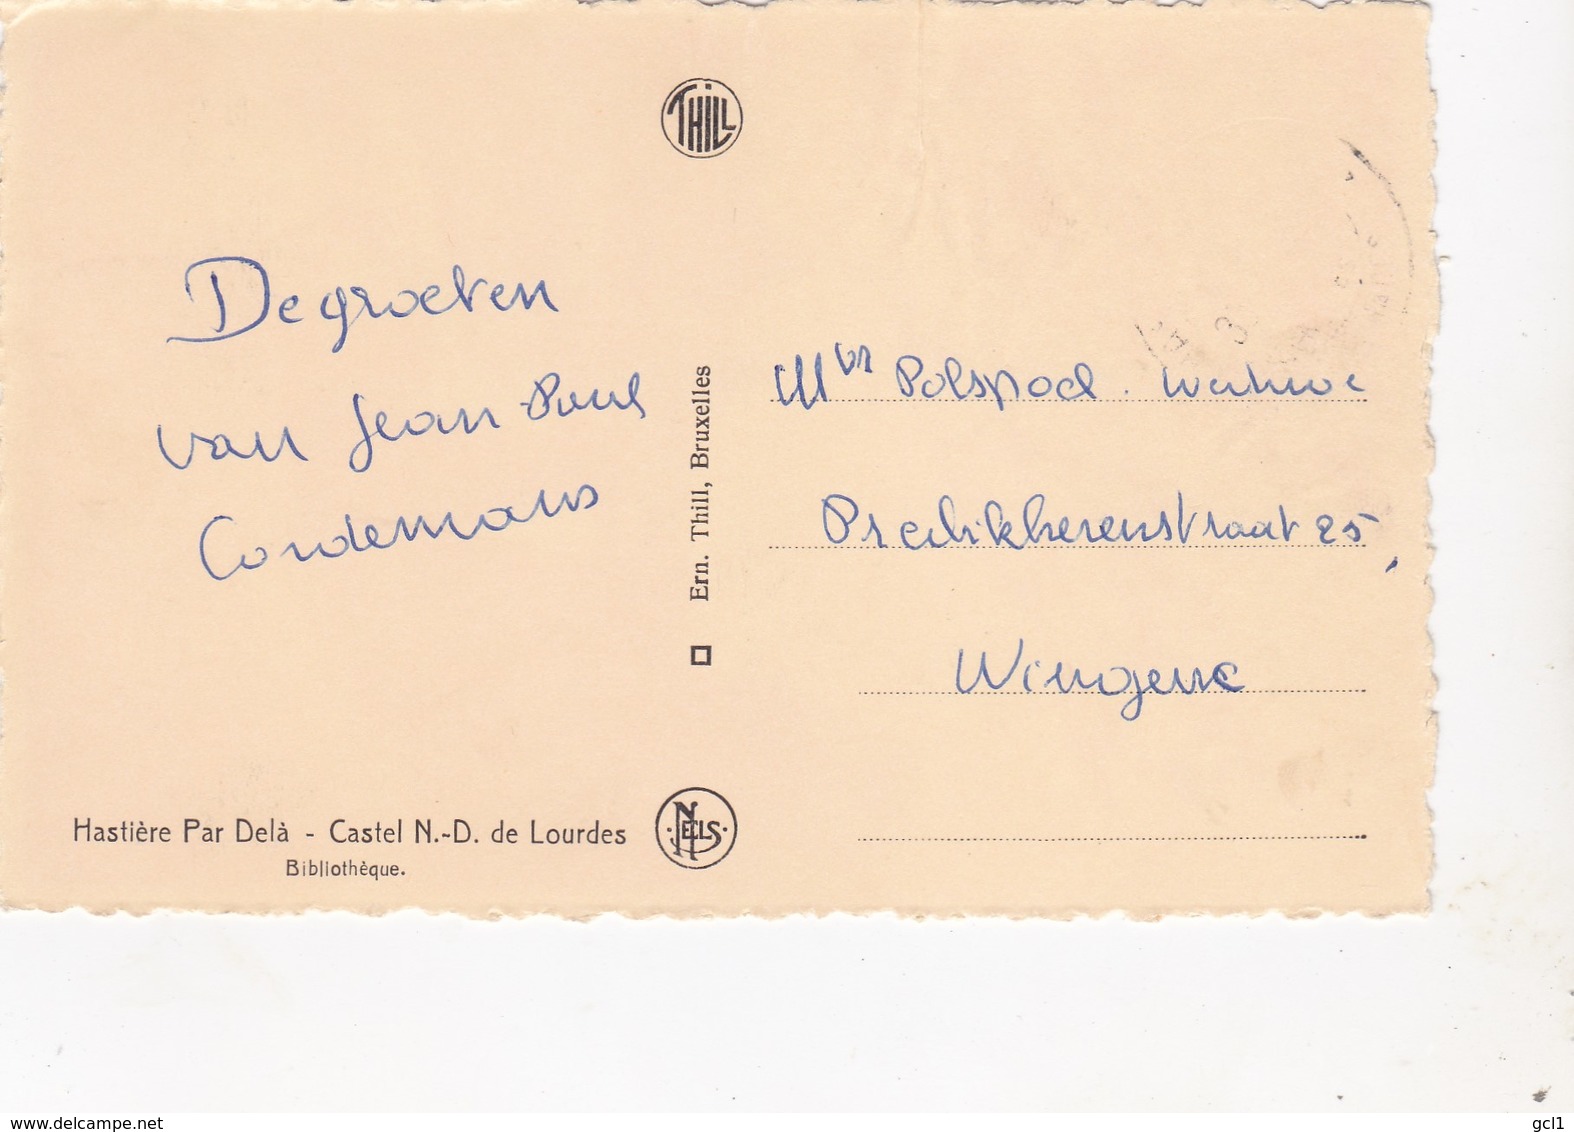 THILL
De groeten
van Jean Paul
Cordemans
Ern. Thill, Bruxelles
Mvr Polspoel.
Predikherenstraat 25,
Wingene
Hastière Par Delà - Castel N.-D. de Lourdes
Bibliothèque.
NELS
www.delcampe.net
gcl1